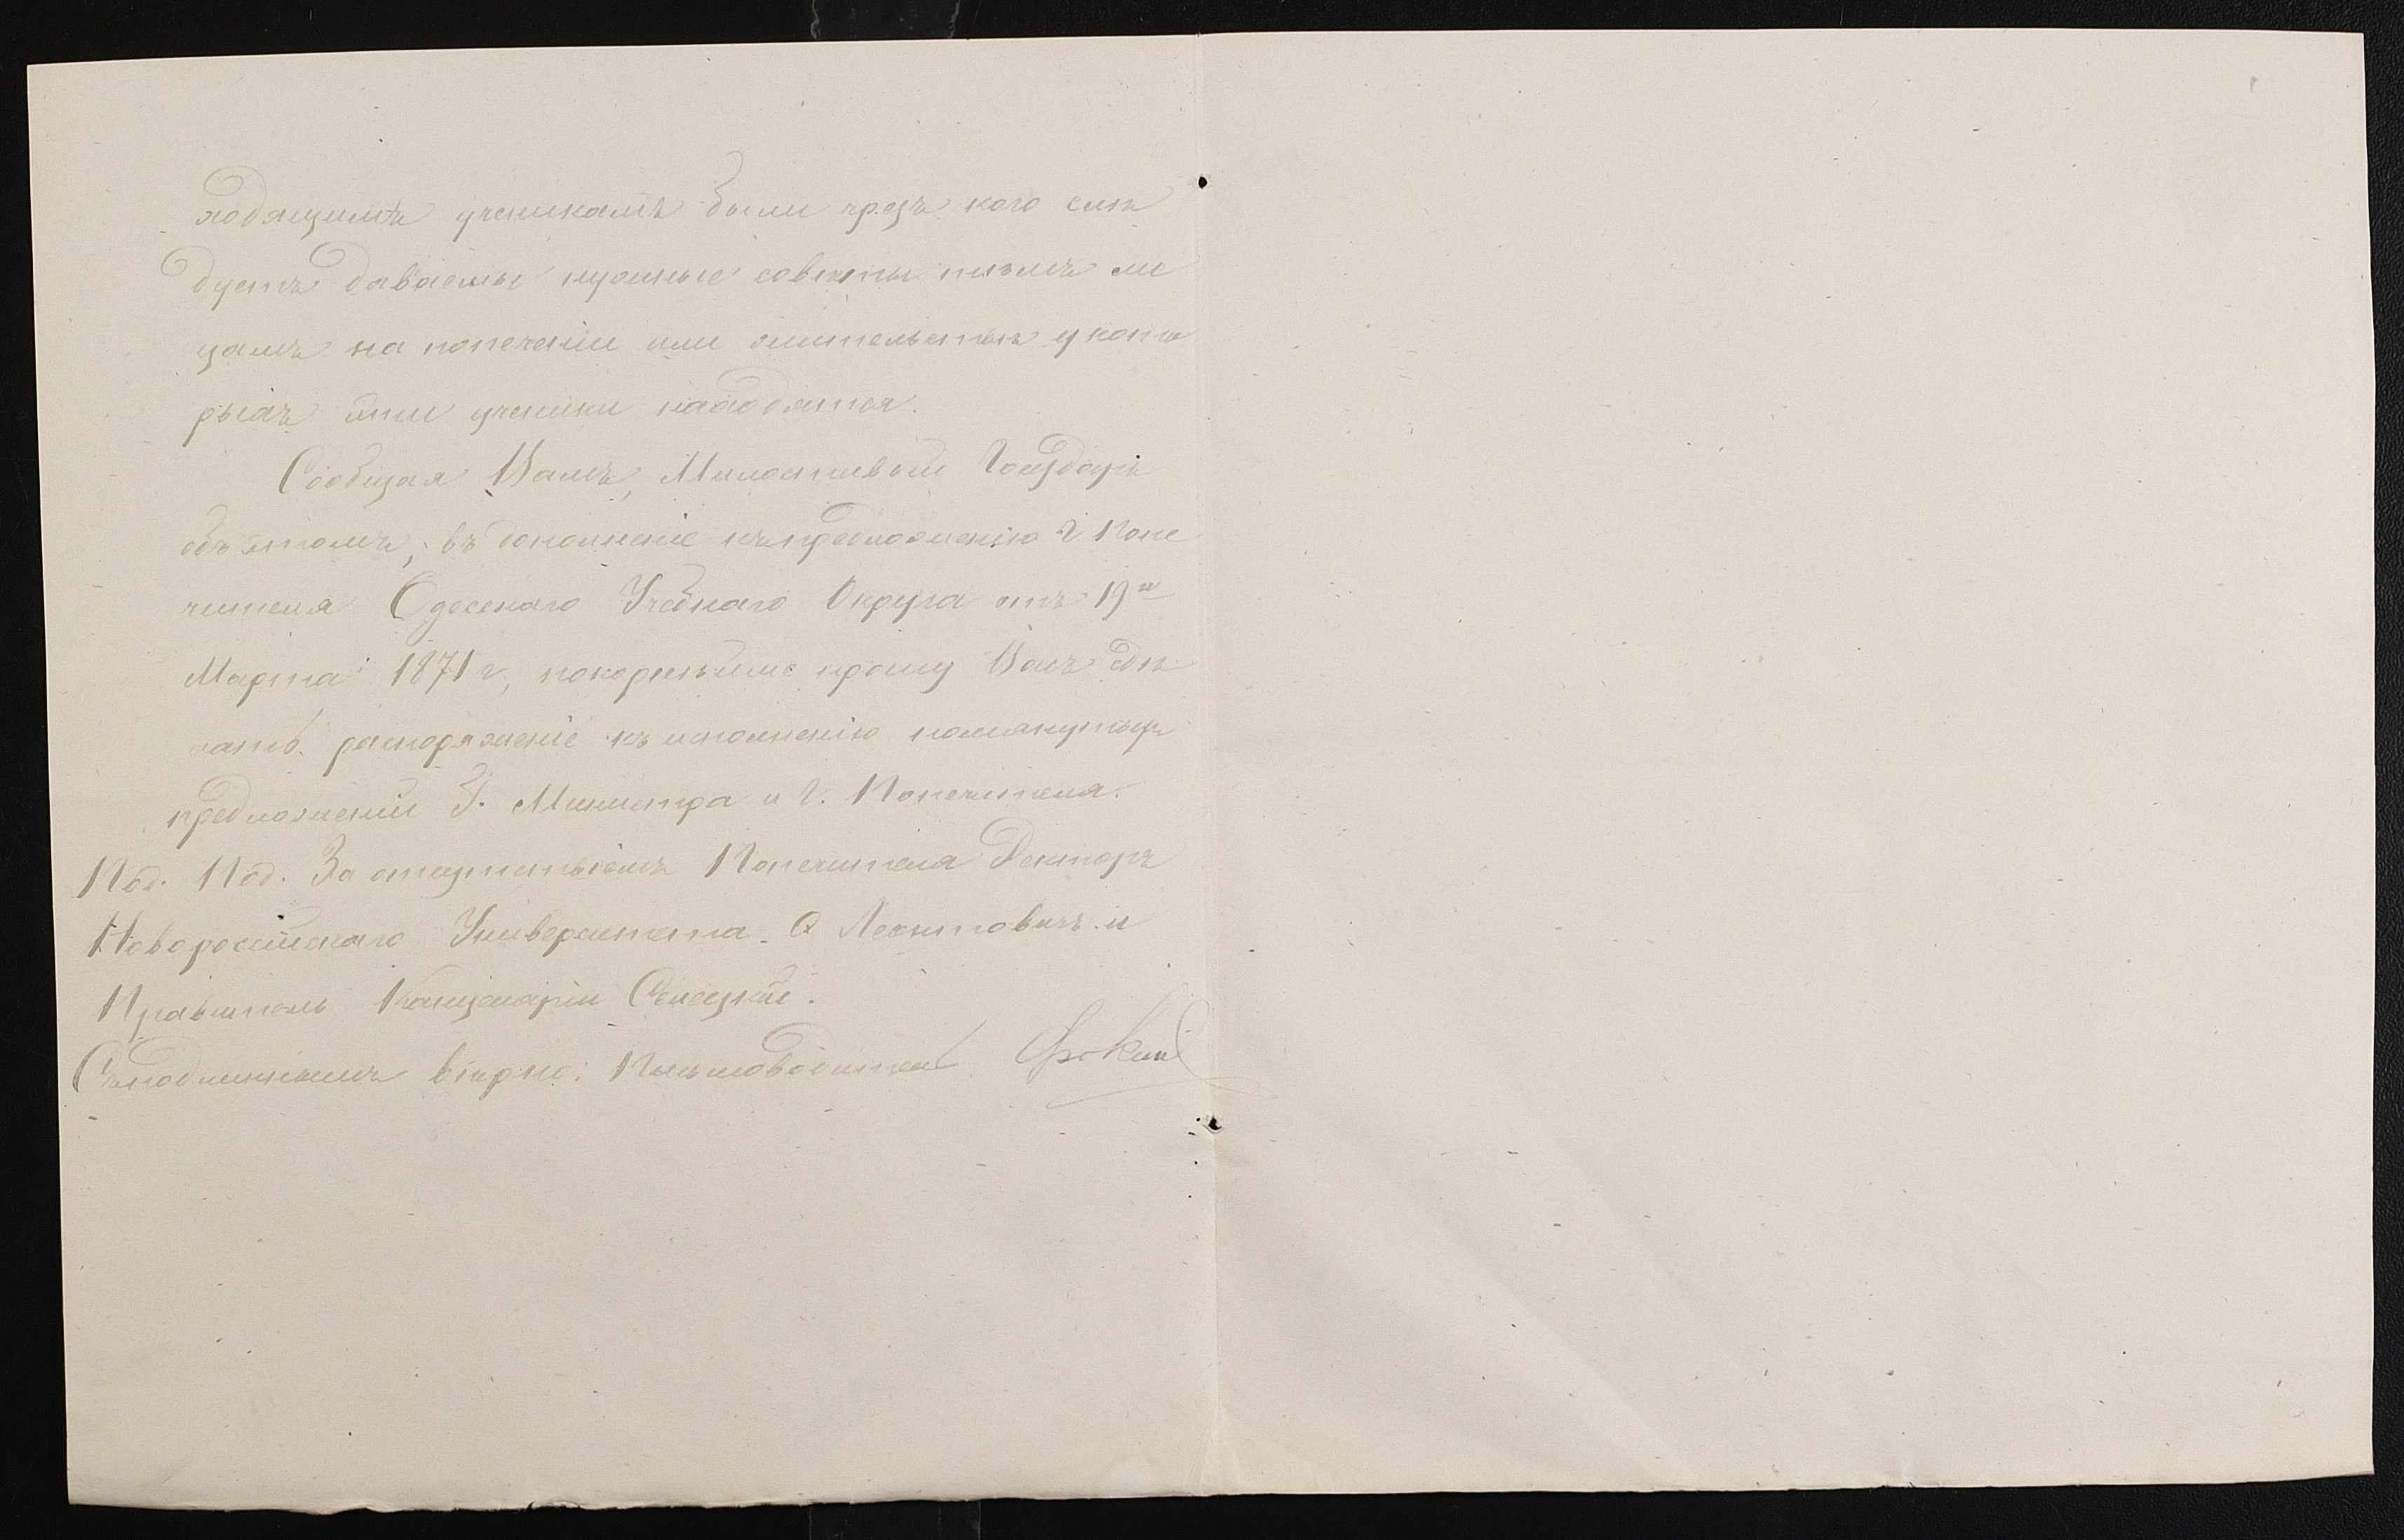 ходящимъ ученикамъ были чрезъ кого слѣ
дуетъ даваемы нужные совѣты тѣмъ ли
цамъ на попеченіи или жительствѣ у кото
рыхъ эти ученики находятся.
Сообщая Вамъ, Милостивый Государь
объ этомъ, въ дополненіе къ предложенію Г. Попе
чителя Одесскаго Учебнаго Округа отъ 19го
Марта 1871 г, покорнѣйше прошу Васъ сдѣ
лать распоряженіе къ исполненію помянутыхъ
предложеній Г. Министра и Г. Попечителя.
Под. Под. За отсутствіемъ Попечителя Ректоръ
Новороссійскаго Университета Ѳ Леонтовичъ и
Правитель Канцеляріи Селецкій.
Съ подлиннымъ вѣрно: Письмоводитель